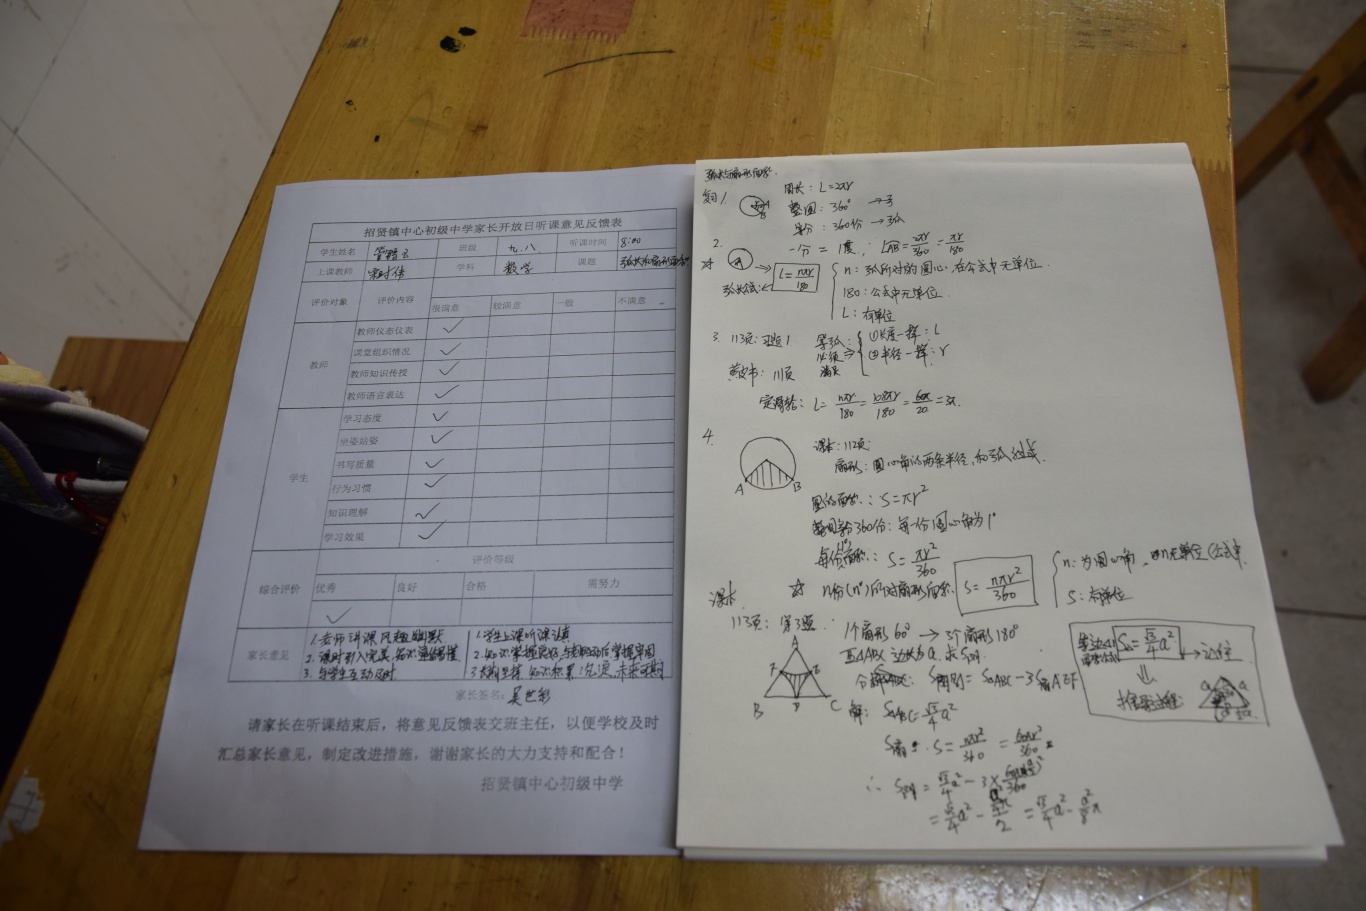 招贤镇中心初级中学家长开放日听课意见反馈表
学生姓名 班级 九.八 听课时间 8:00
上课教师 学科 数学 课题 弧长和扇形面积
评价对象 评价内容
很满意 较满意 一般 不满意
教师 教师仪态仪表 ✓
课堂组织情况 ✓
教师知识传授 ✓
教师语言表达 ✓
学生 学习态度 ✓
坐姿站姿 ✓
书写质量 ✓
行为习惯 ✓
知识理解 ✓
学习效果 ✓
评价等级
综合评价 优秀 良好 合格 需努力
✓
家长意见
1.老师讲课风趣幽默
2.课时引入完美,知识
3.与学生互动及时
1.学生上课听课认真
2.知识掌握良好,
3.知识积累 未来可期
家长签名:
请家长在听课结束后，将意见反馈表交班主任，以便学校及时
汇总家长意见，制定改进措施，谢谢家长的大力支持和配合！
招贤镇中心初级中学
弧长与扇形面积.
复习1 圆长: L=2πr
整圆: 360° →
等分: 360份 → 弧
2. 一份 = 1度, L AB = 2πr/360 = πr/180
☆ A → L = nπr/180
弧长公式:
n: 弧所对的圆心, 在公式中无单位.
180: 公式中无单位.
L: 有单位
3. 113页: 习题1 等弧: ①长度一样: L
必须 ⇒ ②半径一样: r
满足
黄皮书: 111页
定滑轮: L = nπr/180 = 108πr/180 = = 3π.
4.
A B
课本: 112页:
扇形: 圆心角的两条半径, 和弧组成.
圆的面积: S=πr²
整圆分360份: 每一份圆心角为1°
每份面积: S = πr²/360
☆ n份(n°)所对扇形面积. S = nπr²/360
n: 为圆心角, 无单位(公式中
S: 有单位
课本
113页: 第3题: 1个扇形60° → 3个扇形180°
A F E B D C
边长为a, 求S阴.
S阴 = S△ABC - 3S扇AEF
解: S△ABC = √3/4 a²
S扇: S = nπr²/360 = 60πr²/360
∴ S阴 = √3/4 a² - 3×
= √3/4 a² - = √3/4 a² - a²/8 π
等边△ S△ = √3/4 a² → 记住
⇓
推导过程: